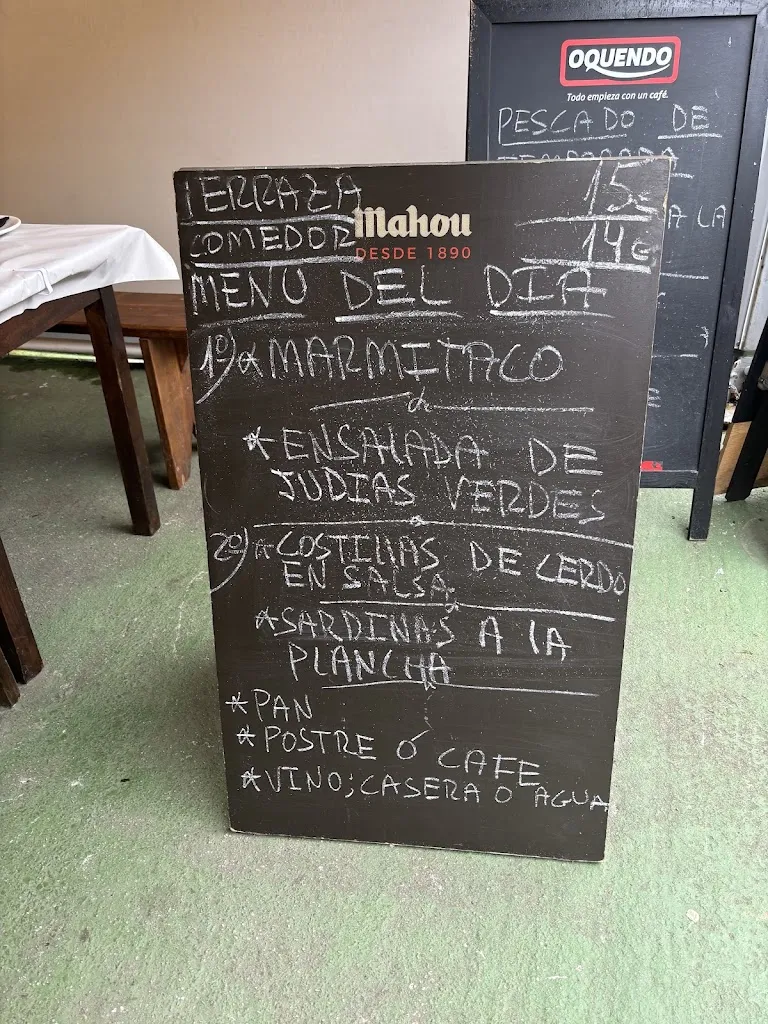 OQUENDO
Todo empieza con un café.
PESCADO DE
TEMPORADA
A LA
TERRAZA 15€
Mahou
COMEDOR 14€
DESDE 1890
MENU DEL DIA
1º) * MARMITACO
* ENSALADA DE
JUDIAS VERDES
2º) * COSTILLAS DE CERDO
EN SALSA
* SARDINAS A LA
PLANCHA
* PAN
* POSTRE Ó CAFE
* VINO; CASERA O AGUA